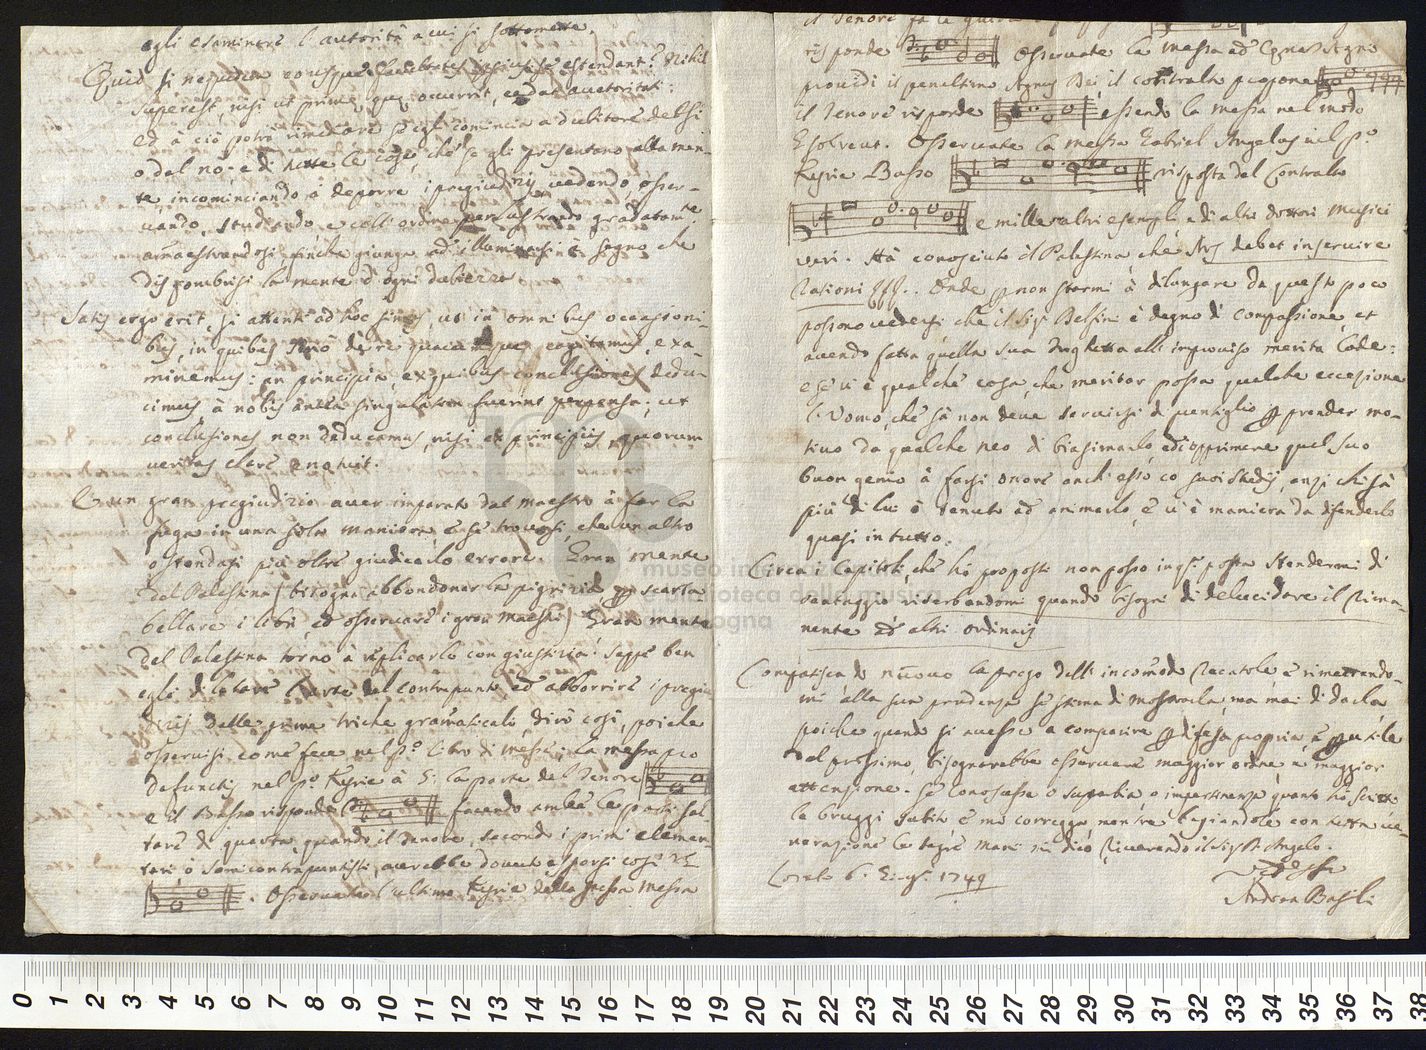 egli esaminare l'autorità a cui si sottomette.
superest, nisi ut prime, quæ occurrit, cedat auctoritati:
ed à ciò potrà rimediare se egli comincia a dubitare del sì
o del nò, e di tutte le cose, che se gli presentano alla men-
te incominciando à deporre i pregiudizij, vedendo, osser-
vando, studiando, e coll'ordine perlustrando gradatamte
ammaestrandosi finche giunga ad illuminarsi à segno che
disgombrisi la mente d'ogni dubiezza
Satis ergo erit, si attenti ad hoc simus, ut in omnibus occasioni-
bus, in quibus
minemus: an principia, ex quibus conclusiones dedu-
cimus, à nobis antea singulatim fuerint perpensa; ut
conclusiones non deducamus, nisi ex principiis, quorum
veritas clare enotuit.
È un gran pregiudizio aver imparato dal maestro à far la
fuga in una sola maniera, e se trovasi, che un altro
ostendasi più oltre giudicarlo errore. Gran mente
del Palestina (bisogna abbandonar la pigrizia
bellare i libri, ed osservare i gran maestri) Gran mente
del Palestina torno à replicarlo con giustizia! Seppe ben
egli dilatare l'arte del contrapunto ed abborrire i pregiu-
dizij delle prime triche gramaticali, dirò così, poiche
osservisi come fece nel po libro di messe: la messa pro
defunctis nel po Kyrie à 5: la parte del Tenore
e il Basso risponde facendo ambe le parti sal-
tare di quarta, quando il Tenore, secondo i primi elemen-
tari, ò semicontrapuntisti, averebbe dovuto esporsi così
Osservate l'ultimo Kyrie della stessa messa
il Tenore fa la
risponde Osservate la messa ad
provvidi il penultimo Agnus Dei, il contralto propone
il Tenore risponde essendo la messa nel modo
Osservate la messa Gabriel Angelus nel po
Kyrie Basso risposta del Contralto
e mille altri esempli, e di altri dottori musici
veri. Hà conosciuto il Palestina che Ars debet inservire
Rationi Onde non starmi à dilungare da questo poco
possono vedersi, che il Sigr Belsini è degno di compassione, et
avendo fatta quella sua Fughetta all'improviso merita lode:
e se vi è qualche cosa, che meritar possa qualche eccezione
l'Uomo, che sà non deve servirsi di puntiglio prender mo-
tivo da qualche neo di biasimarlo, ed opprimere quel suo
buon genio à farsi onore anch'esso co' suoi studij, anzi chi sà
più di lui è tenuto ad animarlo, e vi è maniera da difenderlo
quasi in tutto.
Circa i Capitoli, che hò proposti non posso in qta posta stendermi di
vantaggio riserbandomi quando bisogni di delucidare il Rima-
nente ad altri ordinarij
Compatisca di nuovo la prego dell'incomodo recatole e rimettendo-
mi alla sua prudenza se stima di mostrarla, ma mai di darla,
poiche quando si avesse a comparire difesa propria, e utile
del prossimo, bisognarebbe osservare maggior ordine, e maggior
attenzione. Se conoscesse o superbia, o impertinenza quanto hò scritto
la bruggi subito e me corregga mentre bagiandole con tutta ve-
nerazione le sagre mani mi dico, Riverendo il Sigr D. Angelo.
Loreto 6. Giugo. 1749
Andrea Basili
museo internazionale
e biblioteca della musica
di bologna
0 1 2 3 4 5 6 7 8 9 10 11 12 13 14 15 16 17 18 19 20 21 22 23 24 25 26 27 28 29 30 31 32 33 34 35 36 37 38